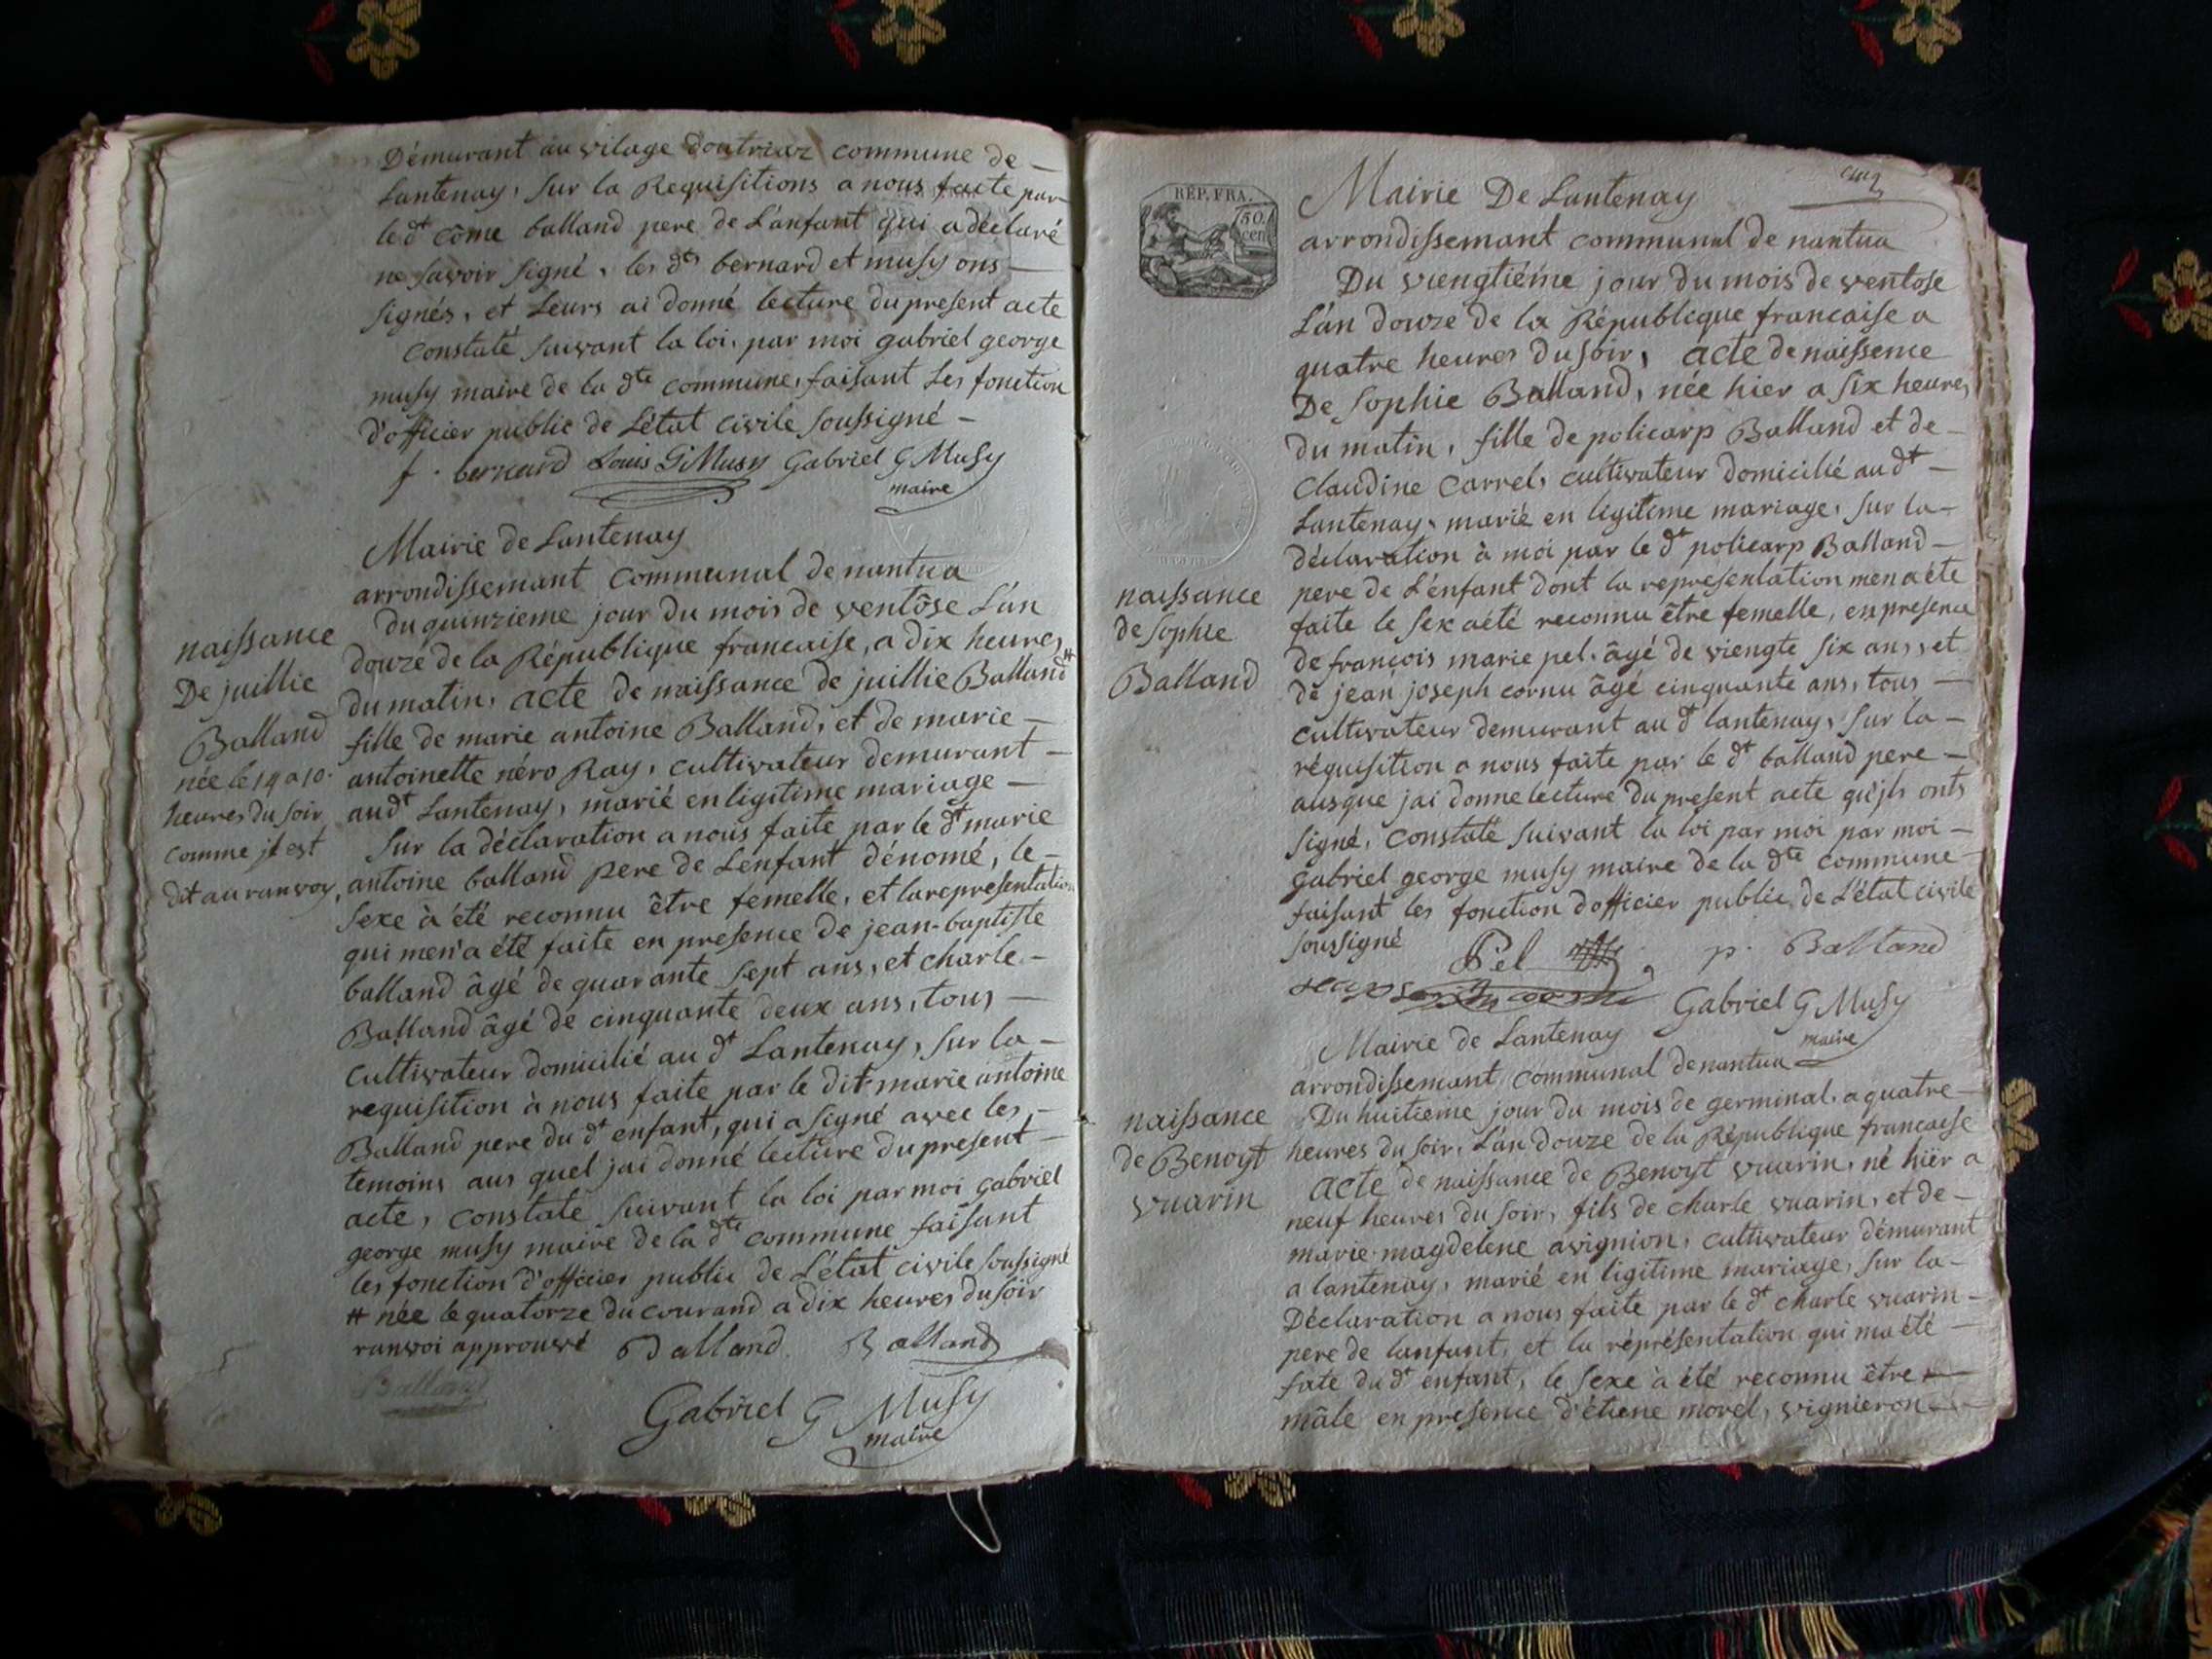 Démurant au vilage doutriaz commune de
Lantenay, sur la Requisitions a nous faite par
le dt côme balland pere de L'anfant qui a déclaré
ne savoir signé, les dts bernard et musy ons
signés, et Leurs ai donné lecture du present acte
constaté suivant la loi, par moi gabriel george
musy maire de la dte commune, faisant Les fonction
d'officier public de L'état civile soussigné
f. bernard Louis G Musy Gabriel G Musy
maire
Mairie de Lantenay
arrondissemant communal de nantua
du quinzieme jour du mois de ventôse L'an
douze de la République francaise, a dix heures
du matin, acte de naissance de juillie Balland #
fille de marie antoine Balland, et de marie
antoinette néro Ray, cultivateur demurant
au dt Lantenay, marié en ligitime mariage
Sur la déclaration a nous faite par le dt marie
antoine balland pere de L'enfant dénomé, le
sexe à été reconnu être femelle, et la representation
qui men'a été faite en presence de jean-baptiste
balland âgé de quarante sept ans, et charle
Balland âgé de cinquante deux ans, tous
cultivateur domicilié au dt Lantenay, sur la
requisition à nous faite par le dit marie antoine
Balland pere du dt enfant, qui a signé avec les
temoins aus quel jai donné lecture du present
acte, constate suivant la loi par moi gabriel
george musy maire de la dte commune faisant
les fonction d'officier public de L'état civile soussigné
# née le quatorze du courand a dix heures du soir
ranvoi approuvé Balland Balland
Balland
Gabriel G Musy
maire
naissance
De juillie
Balland
née le 14 a 10
heures du soir
comme jl est
dit au ranvoy
cinq
RÉP. FRA.
50
cen
Mairie De Lantenay
arrondissemant communal de nantua
Du viengtiéme jour du mois de ventose
L'an douze de la République francaise a
quatre heures du soir, acte de naissence
De Sophie Balland, née hier a six heures
du matin, fille de policarp Balland et de
Claudine Carrel, cultivateur domicilié au dt
Lantenay, marié en ligitime mariage, sur la
déclaration à moi par le dt policarp Balland
pere de L'enfant dont la representation men a été
faite le sex a été reconnu être femelle, en presence
de françois marie pel âgé de viengte six ans, et
de jean joseph cornu âgé cinquante ans, tous
cultivateur demurant au dt lantenay, sur la
réquisition a nous faite par le dt balland pere
ausque jai donne lecture du present acte qu'jls onts
signé, constaté suivant la loi par moi par moi
gabriel george musy maire de la dte commune
faisant les fonction dofficier public de L'état civile
soussigné Pel p. Balland
Gabriel G Musy
maire
naissance
de Sophie
Balland
Mairie de Lantenay
arrondissemant communal de nantua
Du huitieme jour du mois de germinal, a quatre
heures du soir, L'an douze de la République francaise
acte de naissance de Benoyt vuarin, né hiër a
neuf heures du soir, fils de charle vuarin, et de
marie-magdelene avignion, cultivateur démurant
a lantenay, marié en ligitime mariage, sur la
Déclaration a nous faite par le dt charle vuarin
pere de lanfant, et la réprésentation qui ma été
faite du dt enfant, le sexe à été reconnu être
mâle en presence d'étiene morel, vignieron
naissance
de Benoyt
vuarin